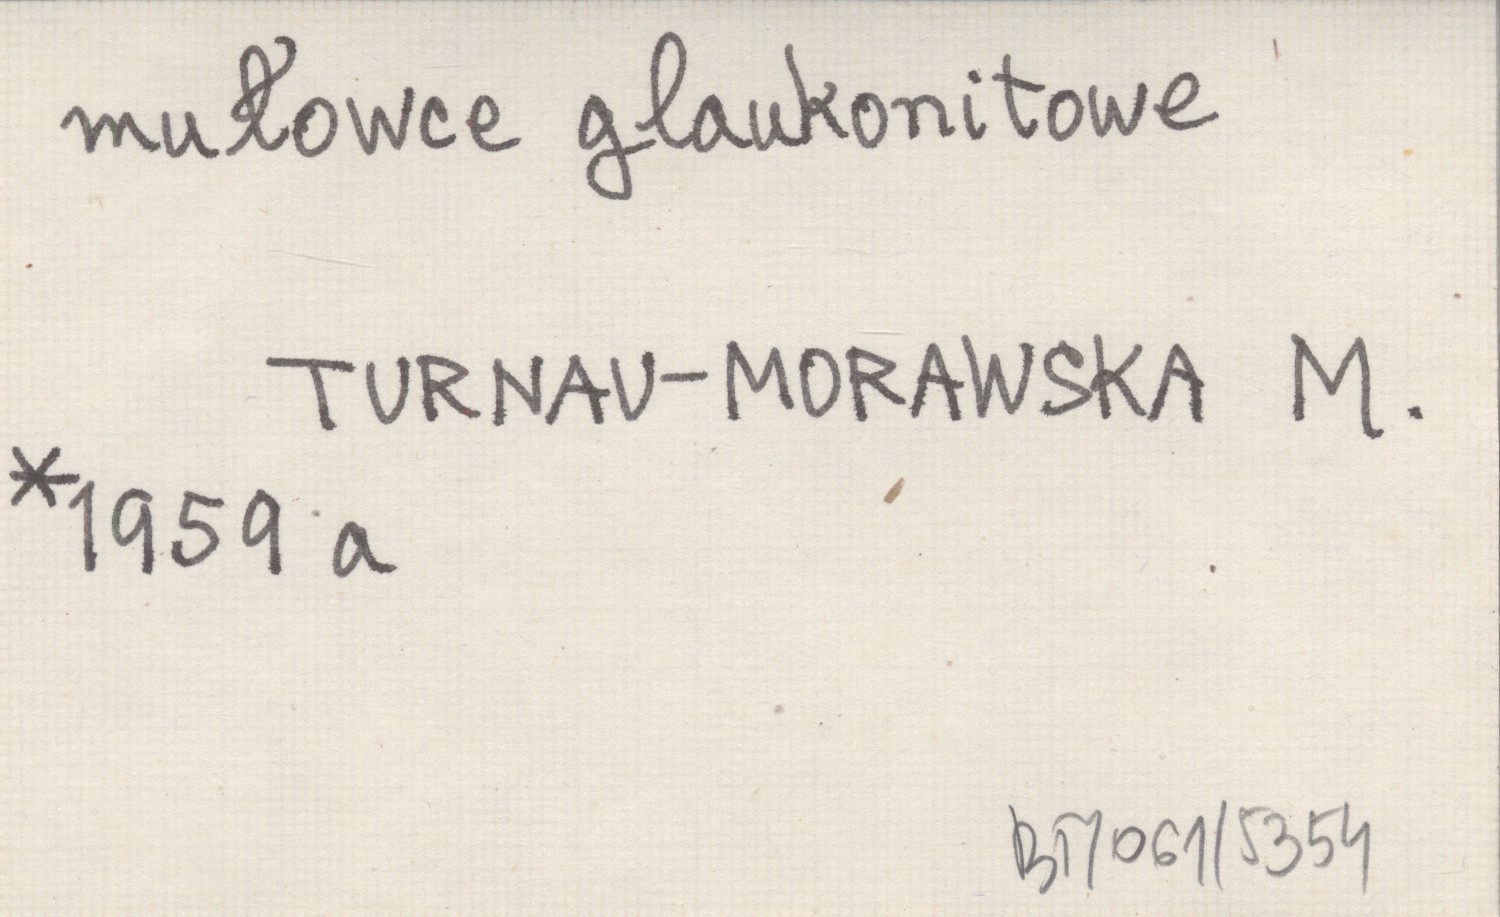 mułowce glaukonitowe
TURNAU-MORAWSKA M.
*1959 a
BT/061/5354